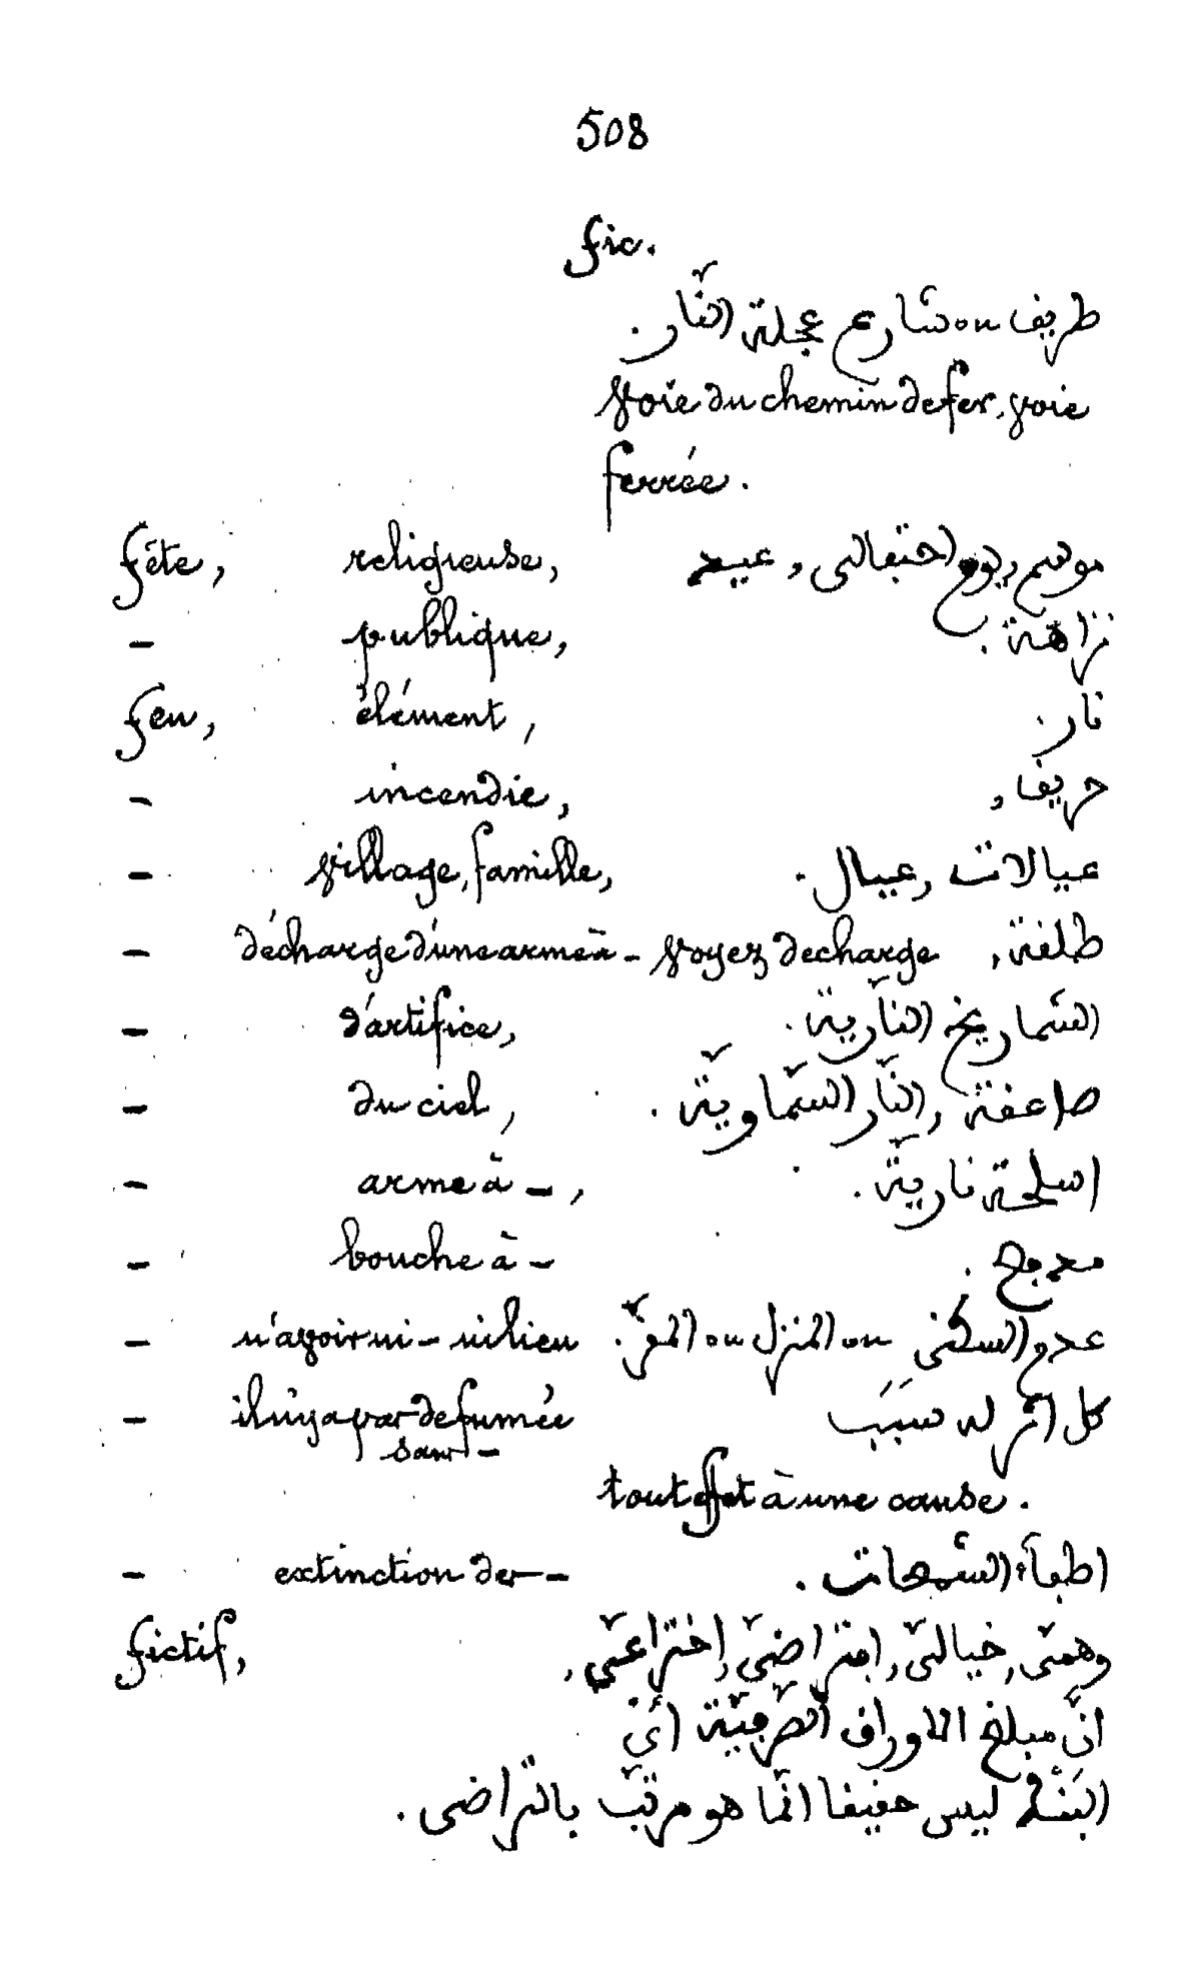 508
fic.
طريق ou شارع عجلة النّار.
voie du chemin de fer, voie
ferrée.
fête, religieuse, موسم, يوم احتفالى, عيد
- publique, نزاهة.
feu, élément, نار.
- incendie, حريق,
- village, famille, عيالات, عيال.
- décharge d'une arme à - voyez decharge طلقة,
- d'artifice, الشماريخ النّارية.
- du ciel, صاعقة, النّار السّماويّة.
- arme à -, اسلحة ناريّة.
- bouche à - مدفع.
- n'avoir ni - ni lieu عدم السكنى ou المنزل ou المقرّ.
- il n'y a pas de fumée كل اثر له سَبَب
sans -
tout effet à une cause.
- extinction des - اطفآء الشّمعات.
fictif, وهمىّ, خيالىّ, افتراضىّ, اختراعىّ,
انّ مبلغ الاوراق الصّرفيّة أىْ
البَنْكْ ليس حقيقا انّما هو مرتّب بالتّراضى.